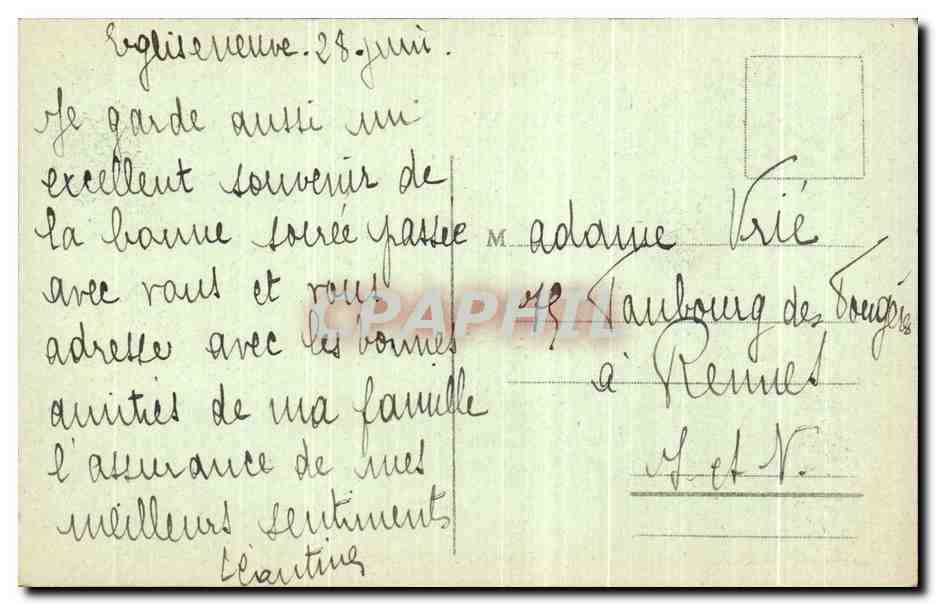 Egliseneuve. 28 juin.
Je garde aussi un
excellent souvenir de
la bonne soirée passée
avec vous et vous
adresse avec les bonnes
amitiés de ma famille
l'assurance de mes
meilleurs sentiments
Madame Vrié
Faubourg de Fougères
à Rennes
I. et V.
CPAPHIL